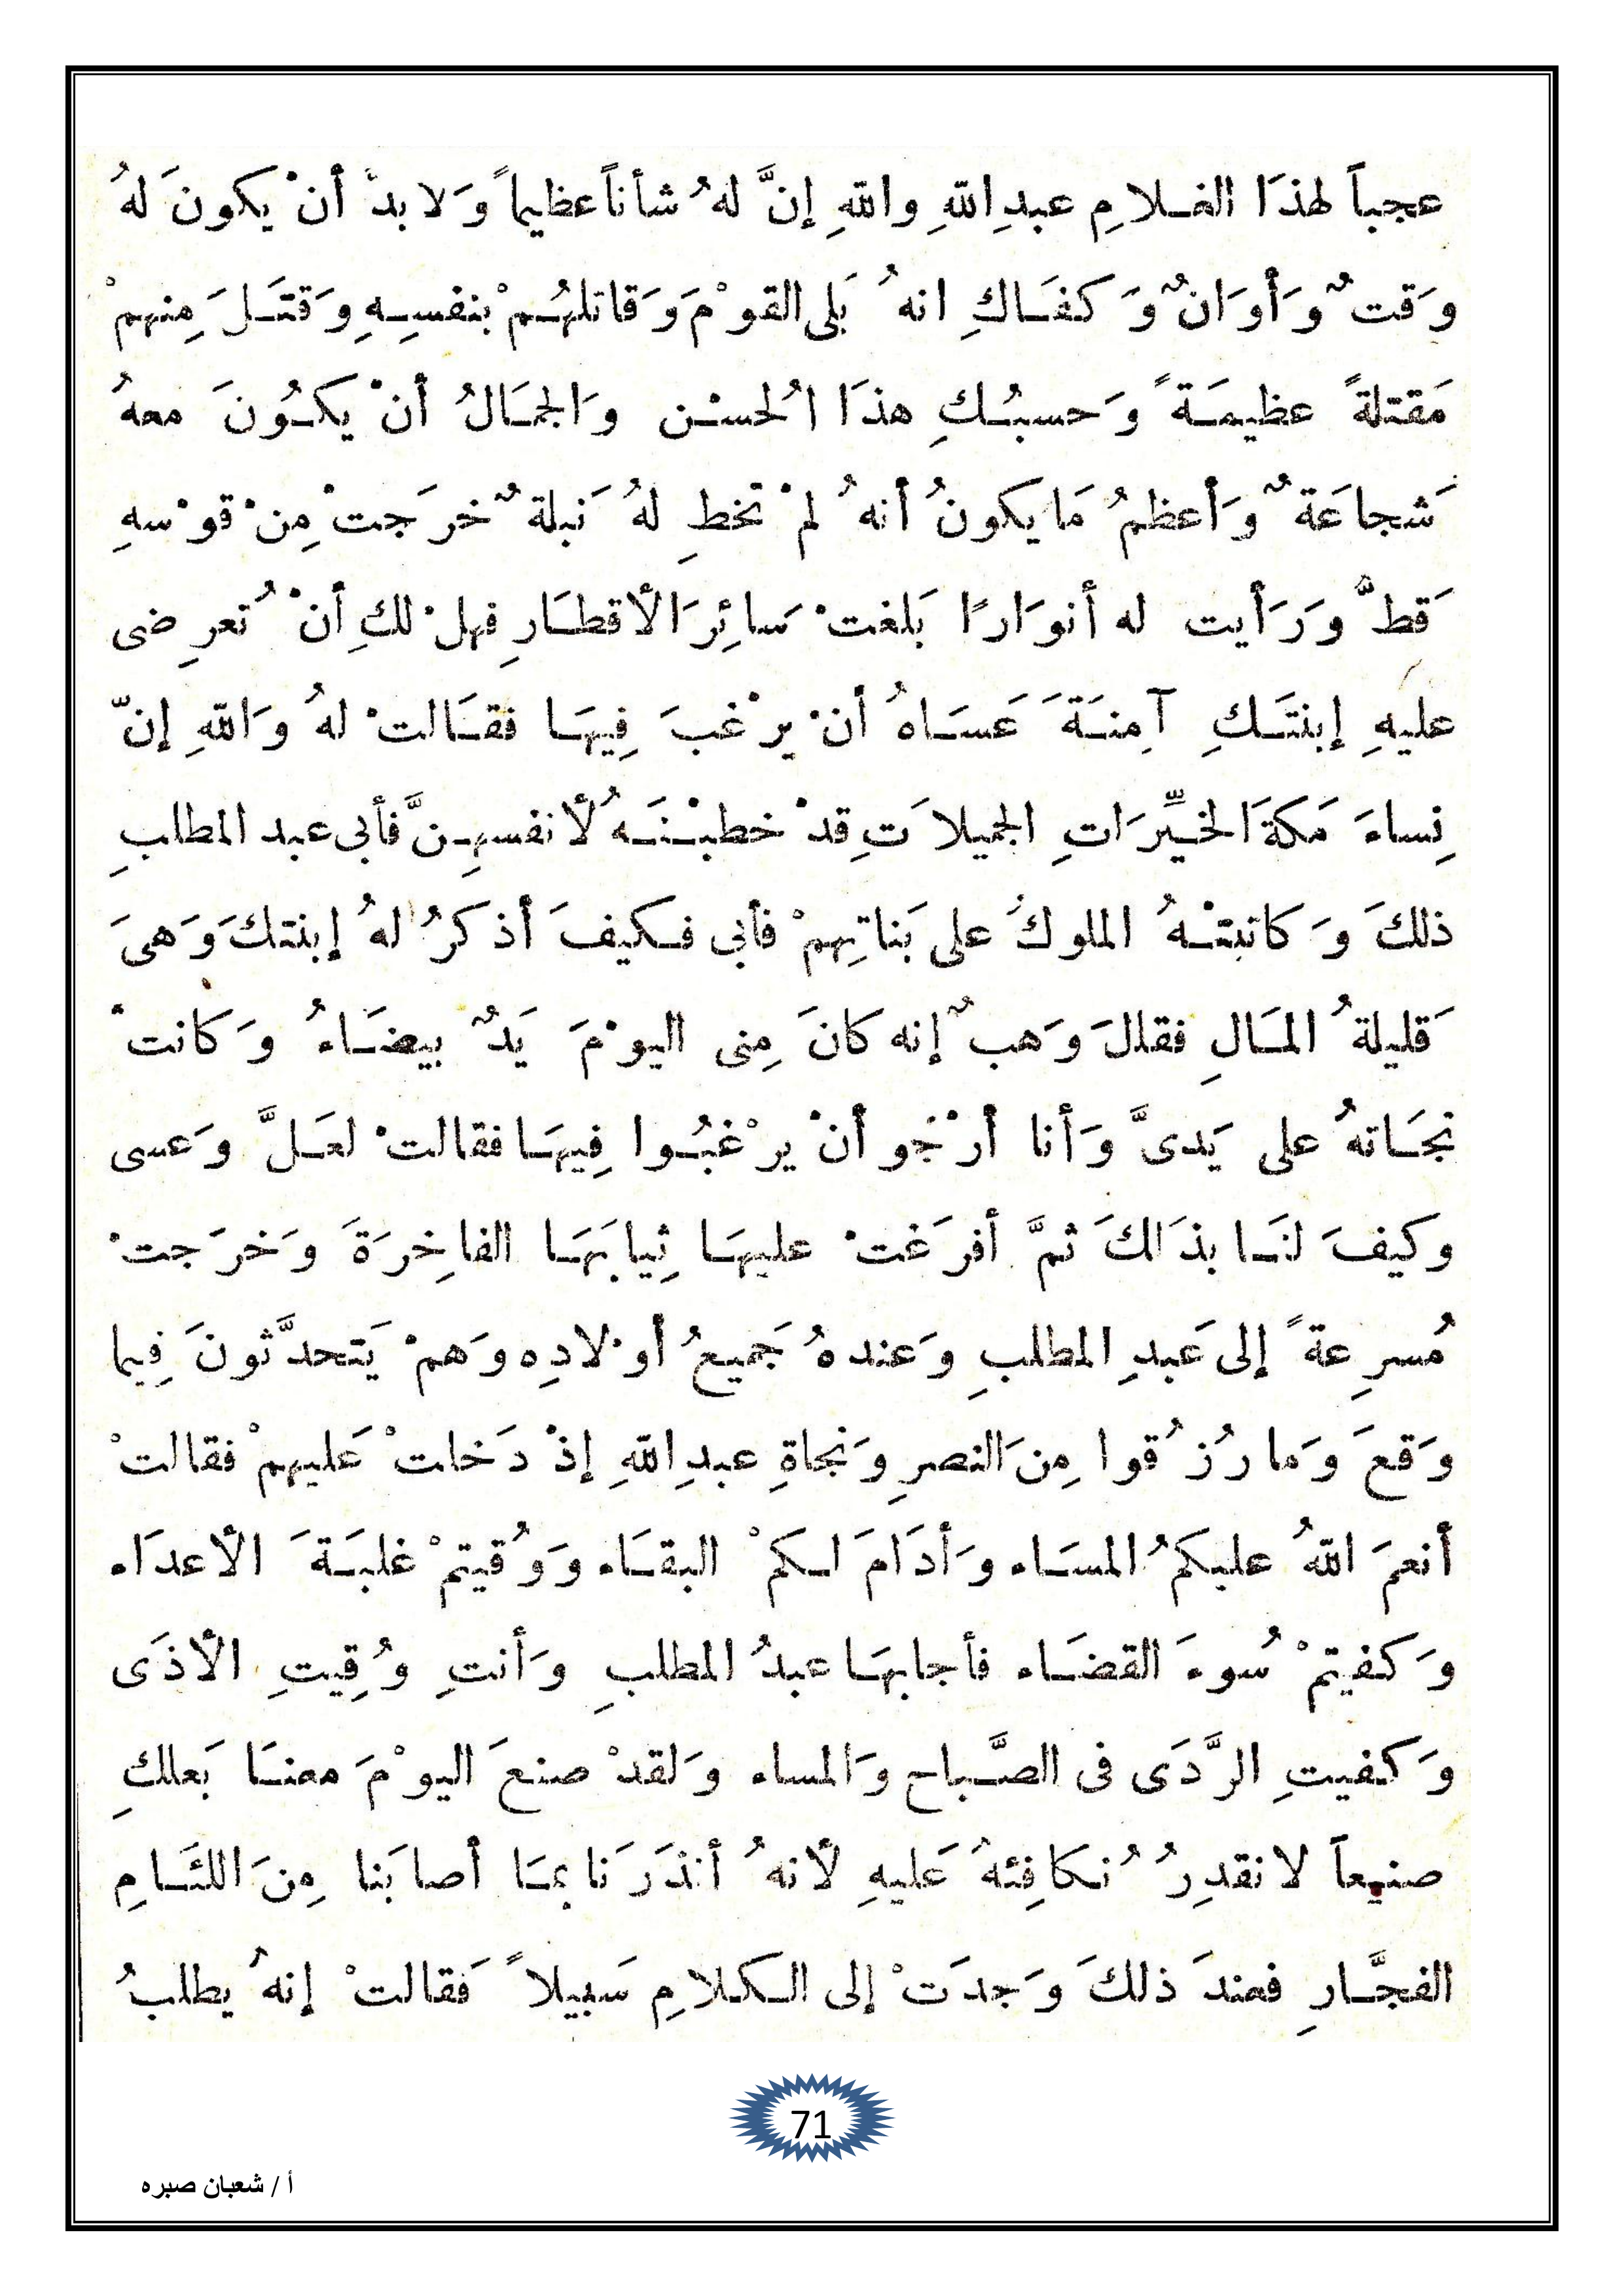 عجباً لهذَا الغـلامِ عبدِ اللّهِ واللّهِ إنَّ لهُ شأناً عظيماً وَلا بدّ أنْ يكونَ لهُ
وَقتٌ وَأوَانٌ وَكفَـاكِ انهُ بَلى القوْمَ وَقاتلهُـمْ بنفسِـهِ وَقتَـلَ مِنهمْ
مَقتلةً عظيمَـةً وَحسبُـكِ هذَا الُحسْـن وَالجمَـالُ أنْ يكـُونَ معهُ
شَجاعَةٌ وَأعظمُ مَا يكونُ أنهُ لمْ تخطِ لهُ نَبلةٌ خرَجتْ مِنْ قوْسهِ
قَطّ وَرَأيت له أنوَارًا بَلغتْ سَائِرَ الأقطـَارِ فهلْ لكِ أنْ تُعرِضى
عليهِ إبنتَـكِ آمِنـَةَ عَسَـاهُ أنْ يرْغبَ فِيهَـا فقـَالتْ لهُ وَاللّهِ إنّ
نِساءَ مَكةَ الخـيِّرَاتِ الجميلاَتِ قدْ خطبْـنَـهُ لأنفسهِـنَّ فأبى عبد المطلبِ
ذلكَ وَكاتبتْـهُ الملوكُ على بَناتِهمْ فأبى فـكيفَ أذكرُ لهُ إبنتكَ وَهىَ
قَليلةُ المَـالِ فقالَ وَهبٌ إنه كانَ مِنى اليوْمَ يَدٌ بيضَـاءُ وَكانتْ
نجَـاتهُ على يَدىَّ وَأنا أرْجُو أنْ يرْغبُـوا فِيهَـا فقالتْ لعَـلَّ وَعسى
وكيفَ لنَـا بذَالكَ ثمَّ أفرَغتْ عليهَـا ثِيابَهَـا الفاخِرَةَ وَخرَجتْ
مُسرِعةً إلى عَبدِ المطلبِ وَعندهُ جَميعُ أوْلادِه وَهمْ يَتحدَّثونَ فِيما
وَقعَ وَما رُزُقوا مِنَ النصرِ وَنجاةِ عبدِ اللّهِ إذْ دَخلتْ عَليهمْ فقالتْ
أنعمَ اللّهُ عليكمُ المسَـاء وَأدَامَ لـكمْ البقـَاء وَوُقيتمْ غلبَـةَ الأعدَاء
وَكفيتمْ سُوءَ القضَـاء فأجابهَـا عبدُ المطلبِ وَأنتِ وُقِيتِ الأذَى
وَكفيتِ الرَّدَى فى الصَّـباح وَالمساء وَلقدْ صنعَ اليوْمَ معنـَا بَعلكِ
صنيعاً لا نقدِرُ نُـكافِئهُ عَليهِ لأنهُ أنذَرَنا بمَـا أصابَنا مِنَ اللئَـامِ
الفجَّـارِ فعندَ ذلكَ وَجدَتْ إلى الـكلامِ سَبيلاً فَقالتْ إنهُ يطلبُ
71
أ / شعبان صبره